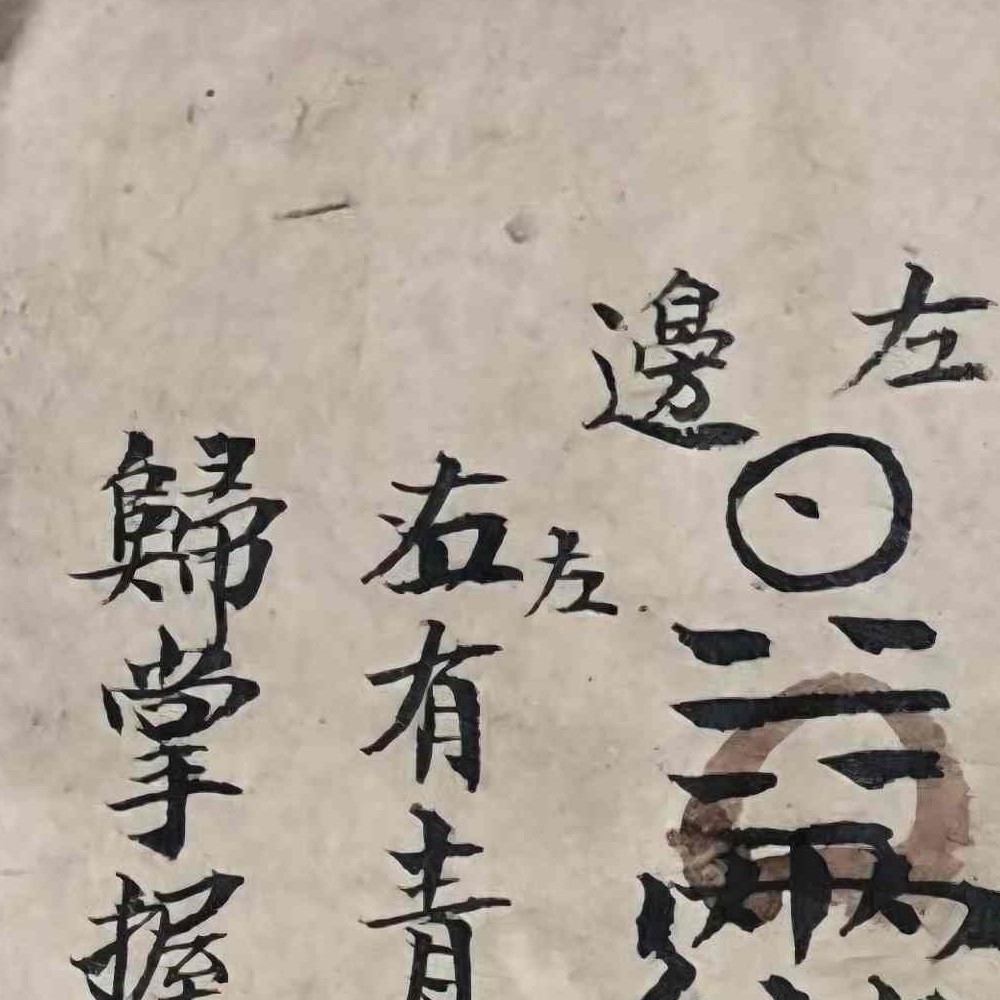 左
邊
左
右有青
歸掌握